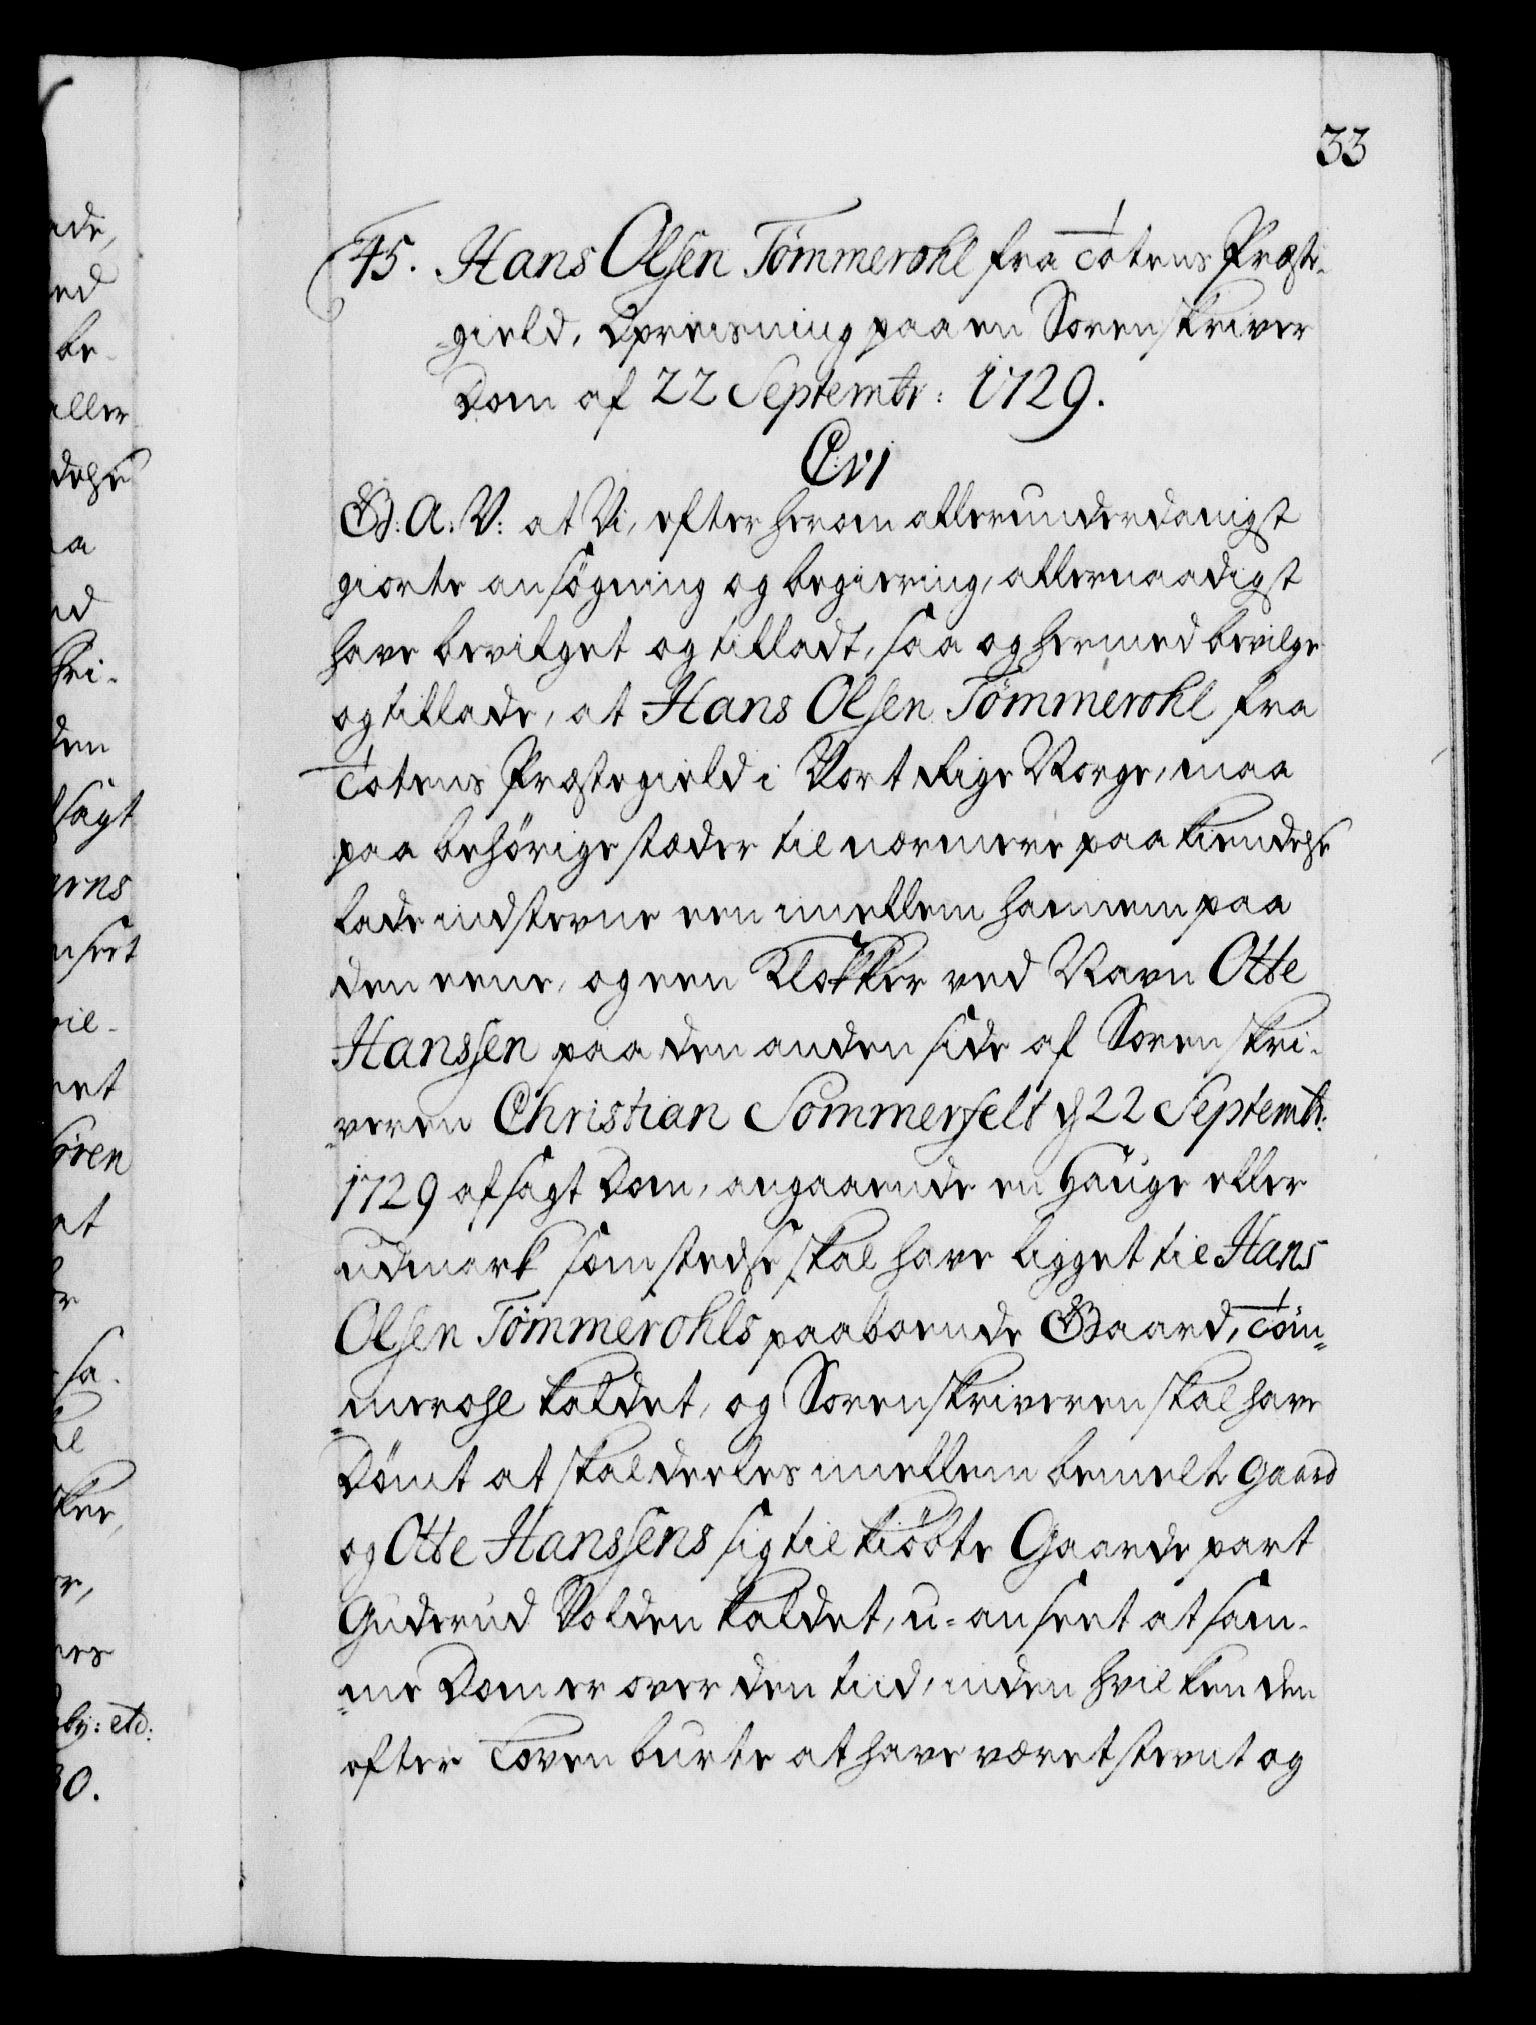 33
45. Hans Olsen Tömmerohl fra Totens Præste-
gield, Opreisning paa en Sorenskriver
Dom af 22 Septembr: 1729.
C: vi
G: A: V: at Vi, efter herom allerunderdanigst
giorte ansögning og begiering, allernaadigst
have bevilget og tilladt, saa og hermed bevilge
og tillade, at Hans Olsen Tömmerohl fra
Totens Præstegield i Vort Rige Norge, maa
paa behörige stæder til nærmere paakiendelse
lade indstevne een imellem hannem paa
den eene, og een Klokker ved Navn Otte
Hanssen paa den anden side af Sorenskri-
veren Christian Sommerfelt d 22 Septembr:
1729 afsagt Dom, angaaende en Hauge eller
udmark som stedse skal have ligget til Hans
Olsen Tömmerohls paaboende Gaard, Töm-
merohl kaldet, og Sorenskriveren skal have
Dömt at skal deeles imellem bemelte Gaard
og Otte Hanssens sig tilkiöbte Gaarde part
Guderud Volden kaldet, u-anseet at sam-
me Dom er over den tiid, inden hvilken den
efter Loven burte at have været stevnt og
ade,
ed
be-
aller
delse
a
d
kri-
den
sagt
erns
nseet
vil-
et
ören
at
er
sa-
ker,
er,
by: etc:
30.